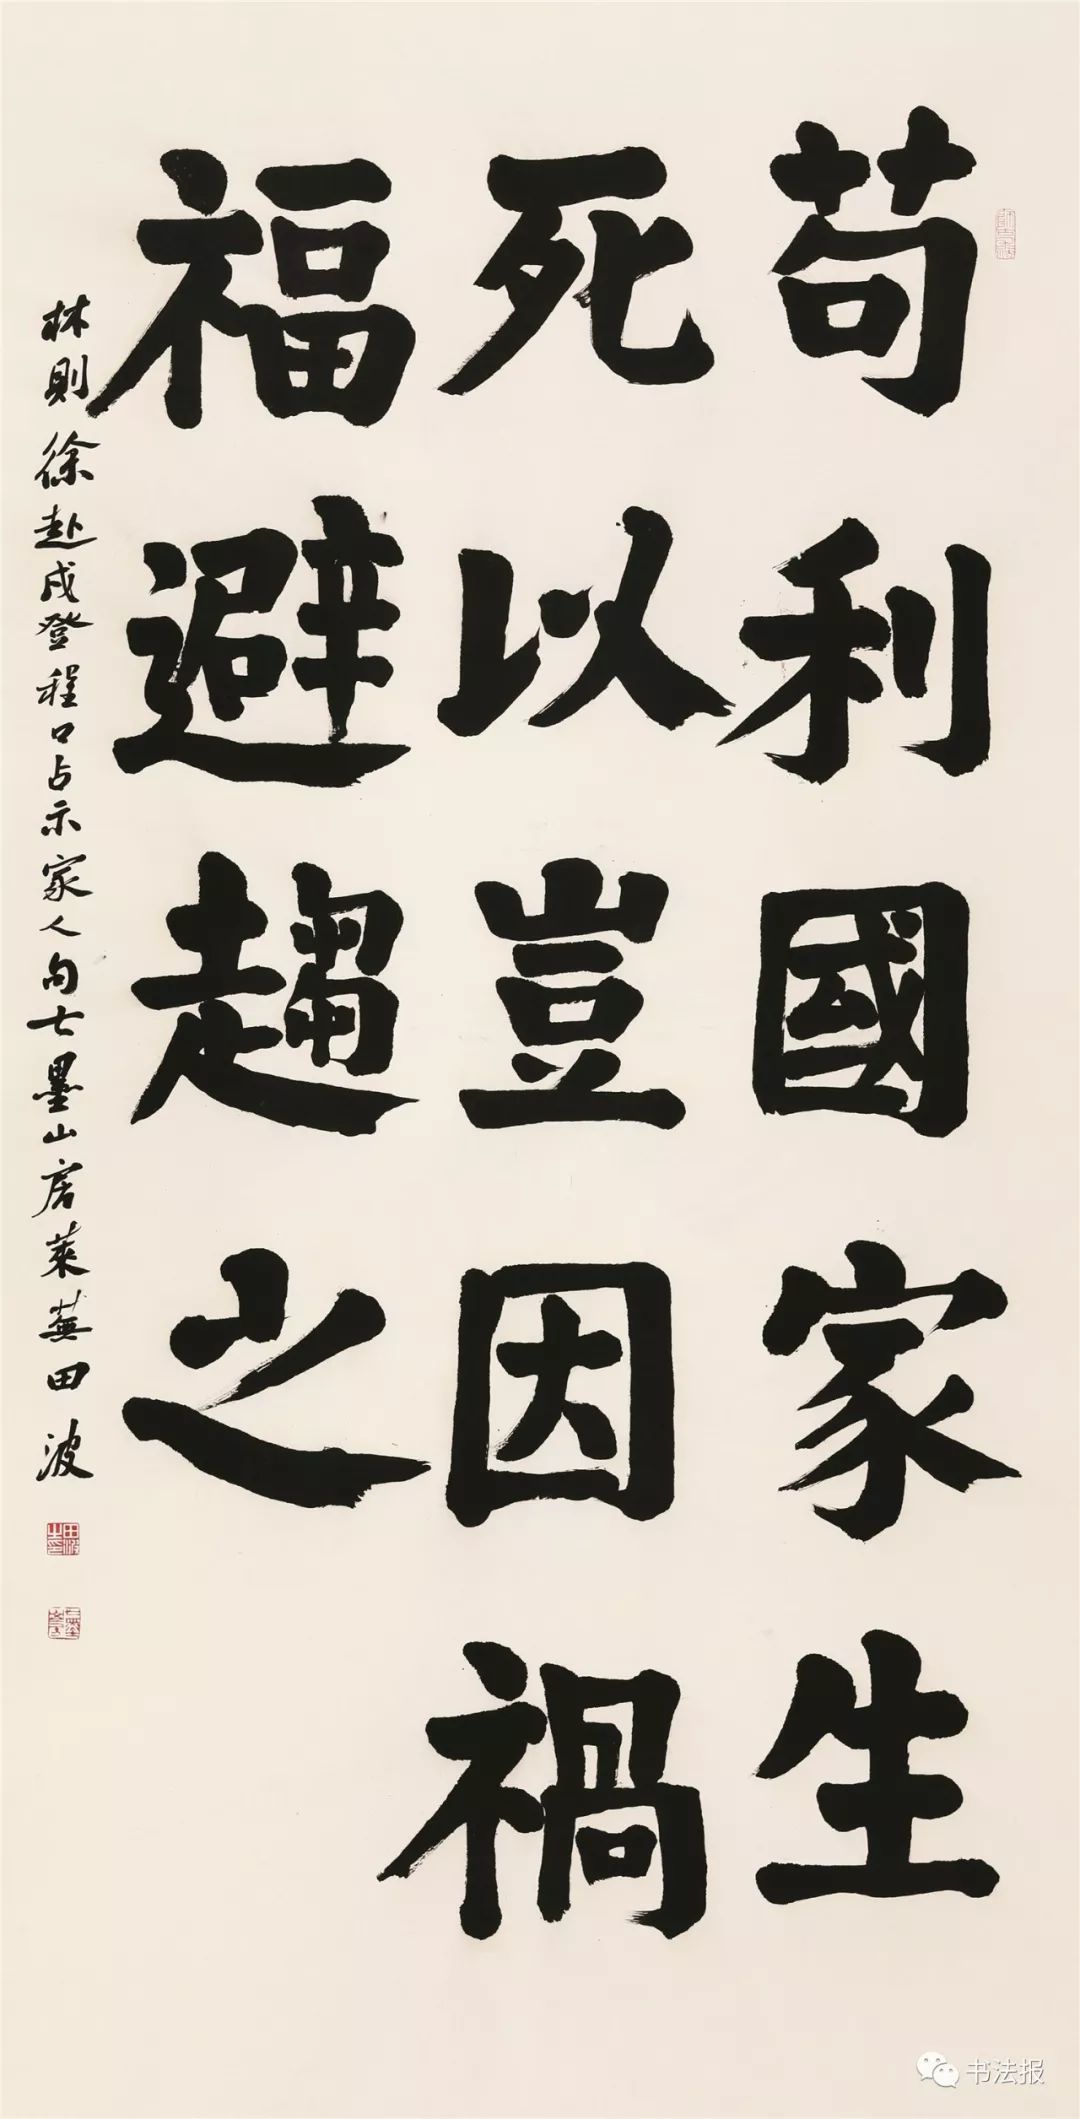 苟利國家生
死以豈因禍
福避趨之
林則徐赴戍登程口占示家人句七墨山房萊蕪田波
田波之印
书法报